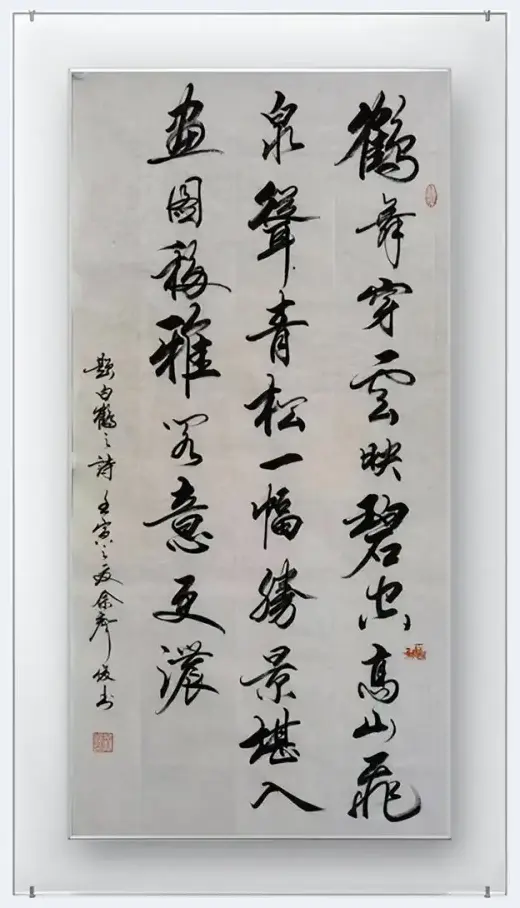 鶴舞穿雲映碧空高山飛
泉聲青松一幅勝景堪入
畫圖移雅客意更濃
題白鶴之詩 壬寅之夏余俊书